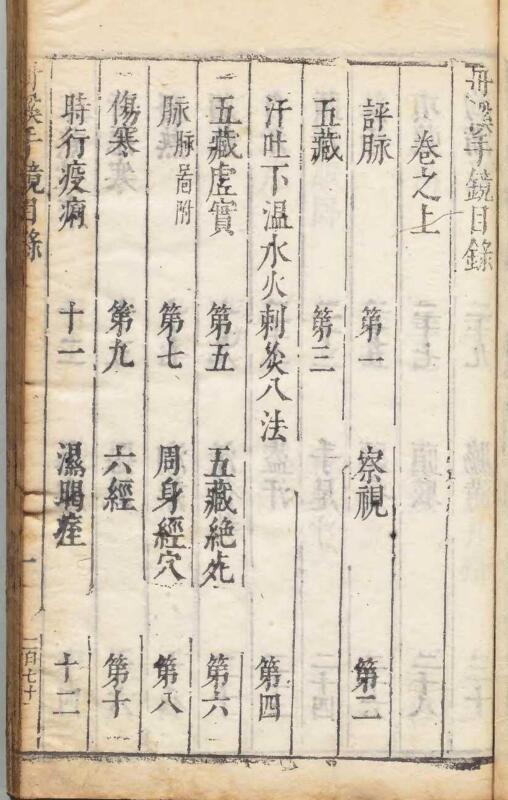 丹溪手鏡目錄
卷之上
評脉 第一 察視 第二
五藏 第三
汗吐下温水火刺灸八法 第四
五藏虛實 第五 五藏絶死 第六
脉 脉啚附 第七 周身經穴 第八
傷寒 第九 六經 第十
時行疫癘 十一 濕暍痓 十二
丹溪手鏡目錄 一